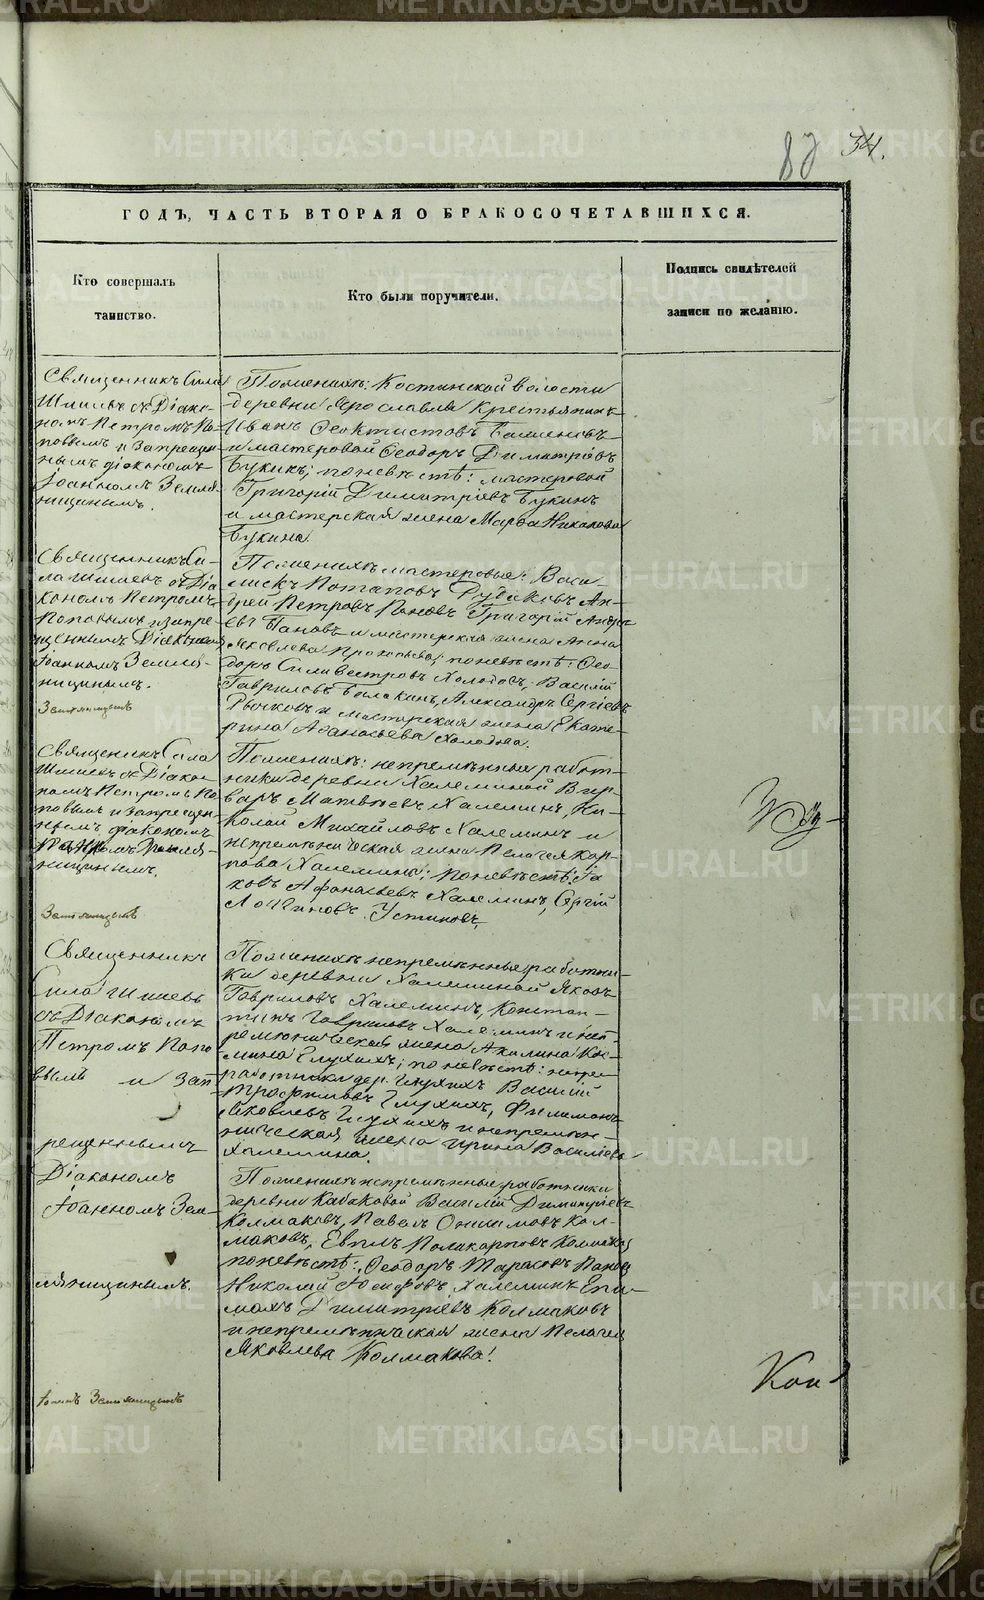 METRIKI.GASO-URAL.RU
34.
ГОДЪ, ЧАСТЬ ВТОРАЯ О БРАКОСОЧЕТАВШИХСЯ.
Кто совершалъ
таинство.
Кто были поручители.
Подпись свидѣтелей
записи по желанію.
Священникъ Сила
Шишевъ съ Діако-
номъ Петромъ По-
повымъ и Запрещен-
нымъ діакономъ
Іоанномъ Земля-
ницинымъ.
По женихѣ: Костинской волости
деревни Ярославля крестьянинъ
Иванъ Феоктистовъ
и мастеровой Ѳеодоръ Димитріевъ
Букинъ; по невѣстѣ: мастеровой
Григорій Димитріевъ Букинъ
и мастерская жена Марѳа Никонова
Букина
Священникъ Си-
ла Шишевъ съ Діа-
кономъ Петромъ
Поповымъ и запре-
щеннымъ Діакономъ
Іоанномъ Земля-
ницинымъ.
По женихѣ мастеровые: Васи-
лискъ Потаповъ Рудаковъ, Ан-
дрей Петровъ Пановъ, Григорій Андре-
евъ Пановъ и мастерская жена Анна
Яковлева Прокопьева; по невѣстѣ: Ѳео-
доръ Силивестровъ Холодовъ, Василій
Гавриловъ Балакинъ, Александръ Сергіевъ
и мастерская жена Екате-
рина Аѳанасьева Холодова.
Священникъ Сила
Шишевъ съ Діако-
номъ Петромъ По-
повымъ и Запрещен-
нымъ діакономъ
Іоанномъ Земля-
ницинымъ.
По женихѣ: непремѣнные работ-
ники деревни Халеминой
Матвѣевъ Халеминъ, Ни-
колай Михайловъ Халеминъ и
непремѣнническая жена Пелагея Кар-
пова Халемина; по невѣстѣ: Іа-
ковъ Аѳанасьевъ Халеминъ, Сергій
Логиновъ Устиновъ.
Священникъ
Сила Шишевъ
съ Діакономъ
Петромъ Попо
вымъ и Зап
рещеннымъ
Діакономъ
Іоанномъ Зем-
ляницинымъ.
По женихѣ непремѣнные работни-
ки деревни Халеминой Яковъ
Гавриловъ Халеминъ, Констан-
тинъ Гавриловъ Халеминъ и неп-
ремѣнническая жена Акилина Кос-
мина Глухихъ; по невѣстѣ: непре
работники дер. Глухихъ Василій
Трофимовъ Глухихъ, Филимонъ
Яковлевъ Глухихъ и непремѣн-
ническая жена Ирина Васильева
Халемина.
По женихѣ непремѣнные работники
деревни Кабаковой Василій Димитріевъ
Колмаковъ, Павелъ Онисимовъ Кол-
маковъ, Евплъ Поликарповъ Колмаковъ
по невѣстѣ: Ѳеодоръ Тарасовъ Пановъ
Николай Іосифовъ Халеминъ Епи-
махъ Димитріевъ Колмаковъ
и непремѣнническая жена Пелагея
Яковлева Колмакова.